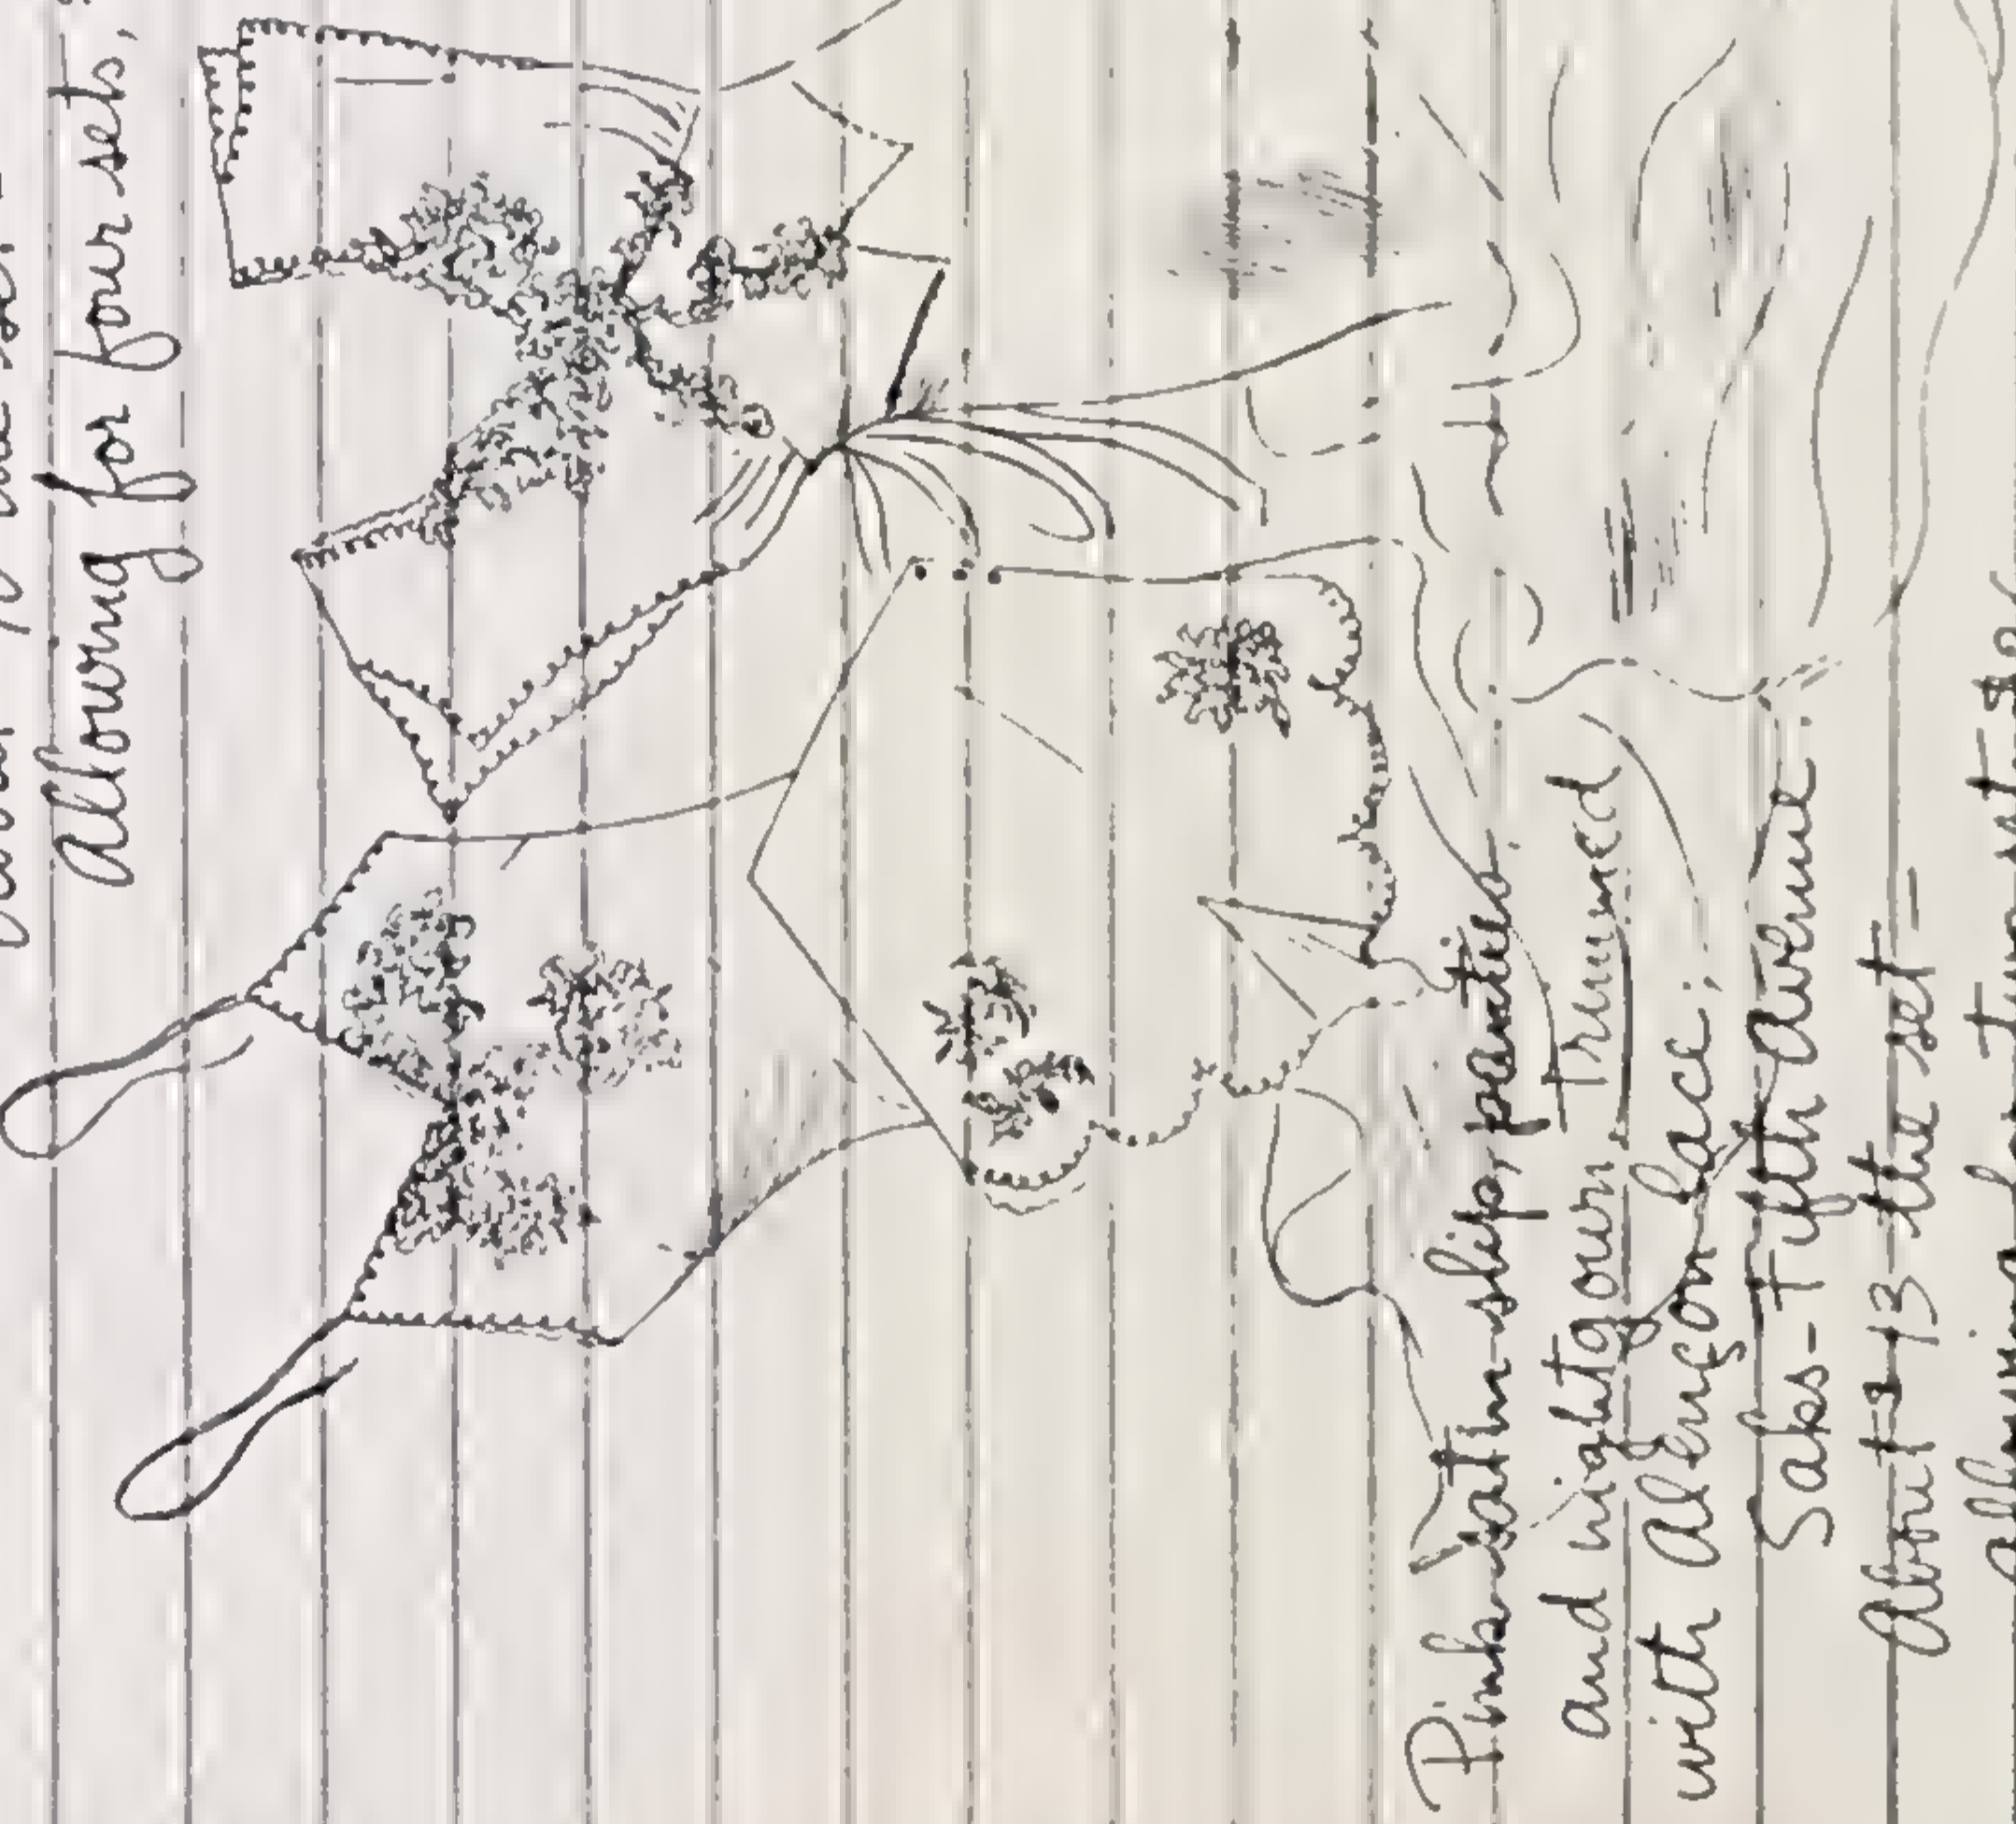 Allowing for four sets,
Pink satin slip, panties
and nightgown trimmed
with Alençon lace;
Saks-Fifth Avenue.
About $13 the set –
Allowing for two sets